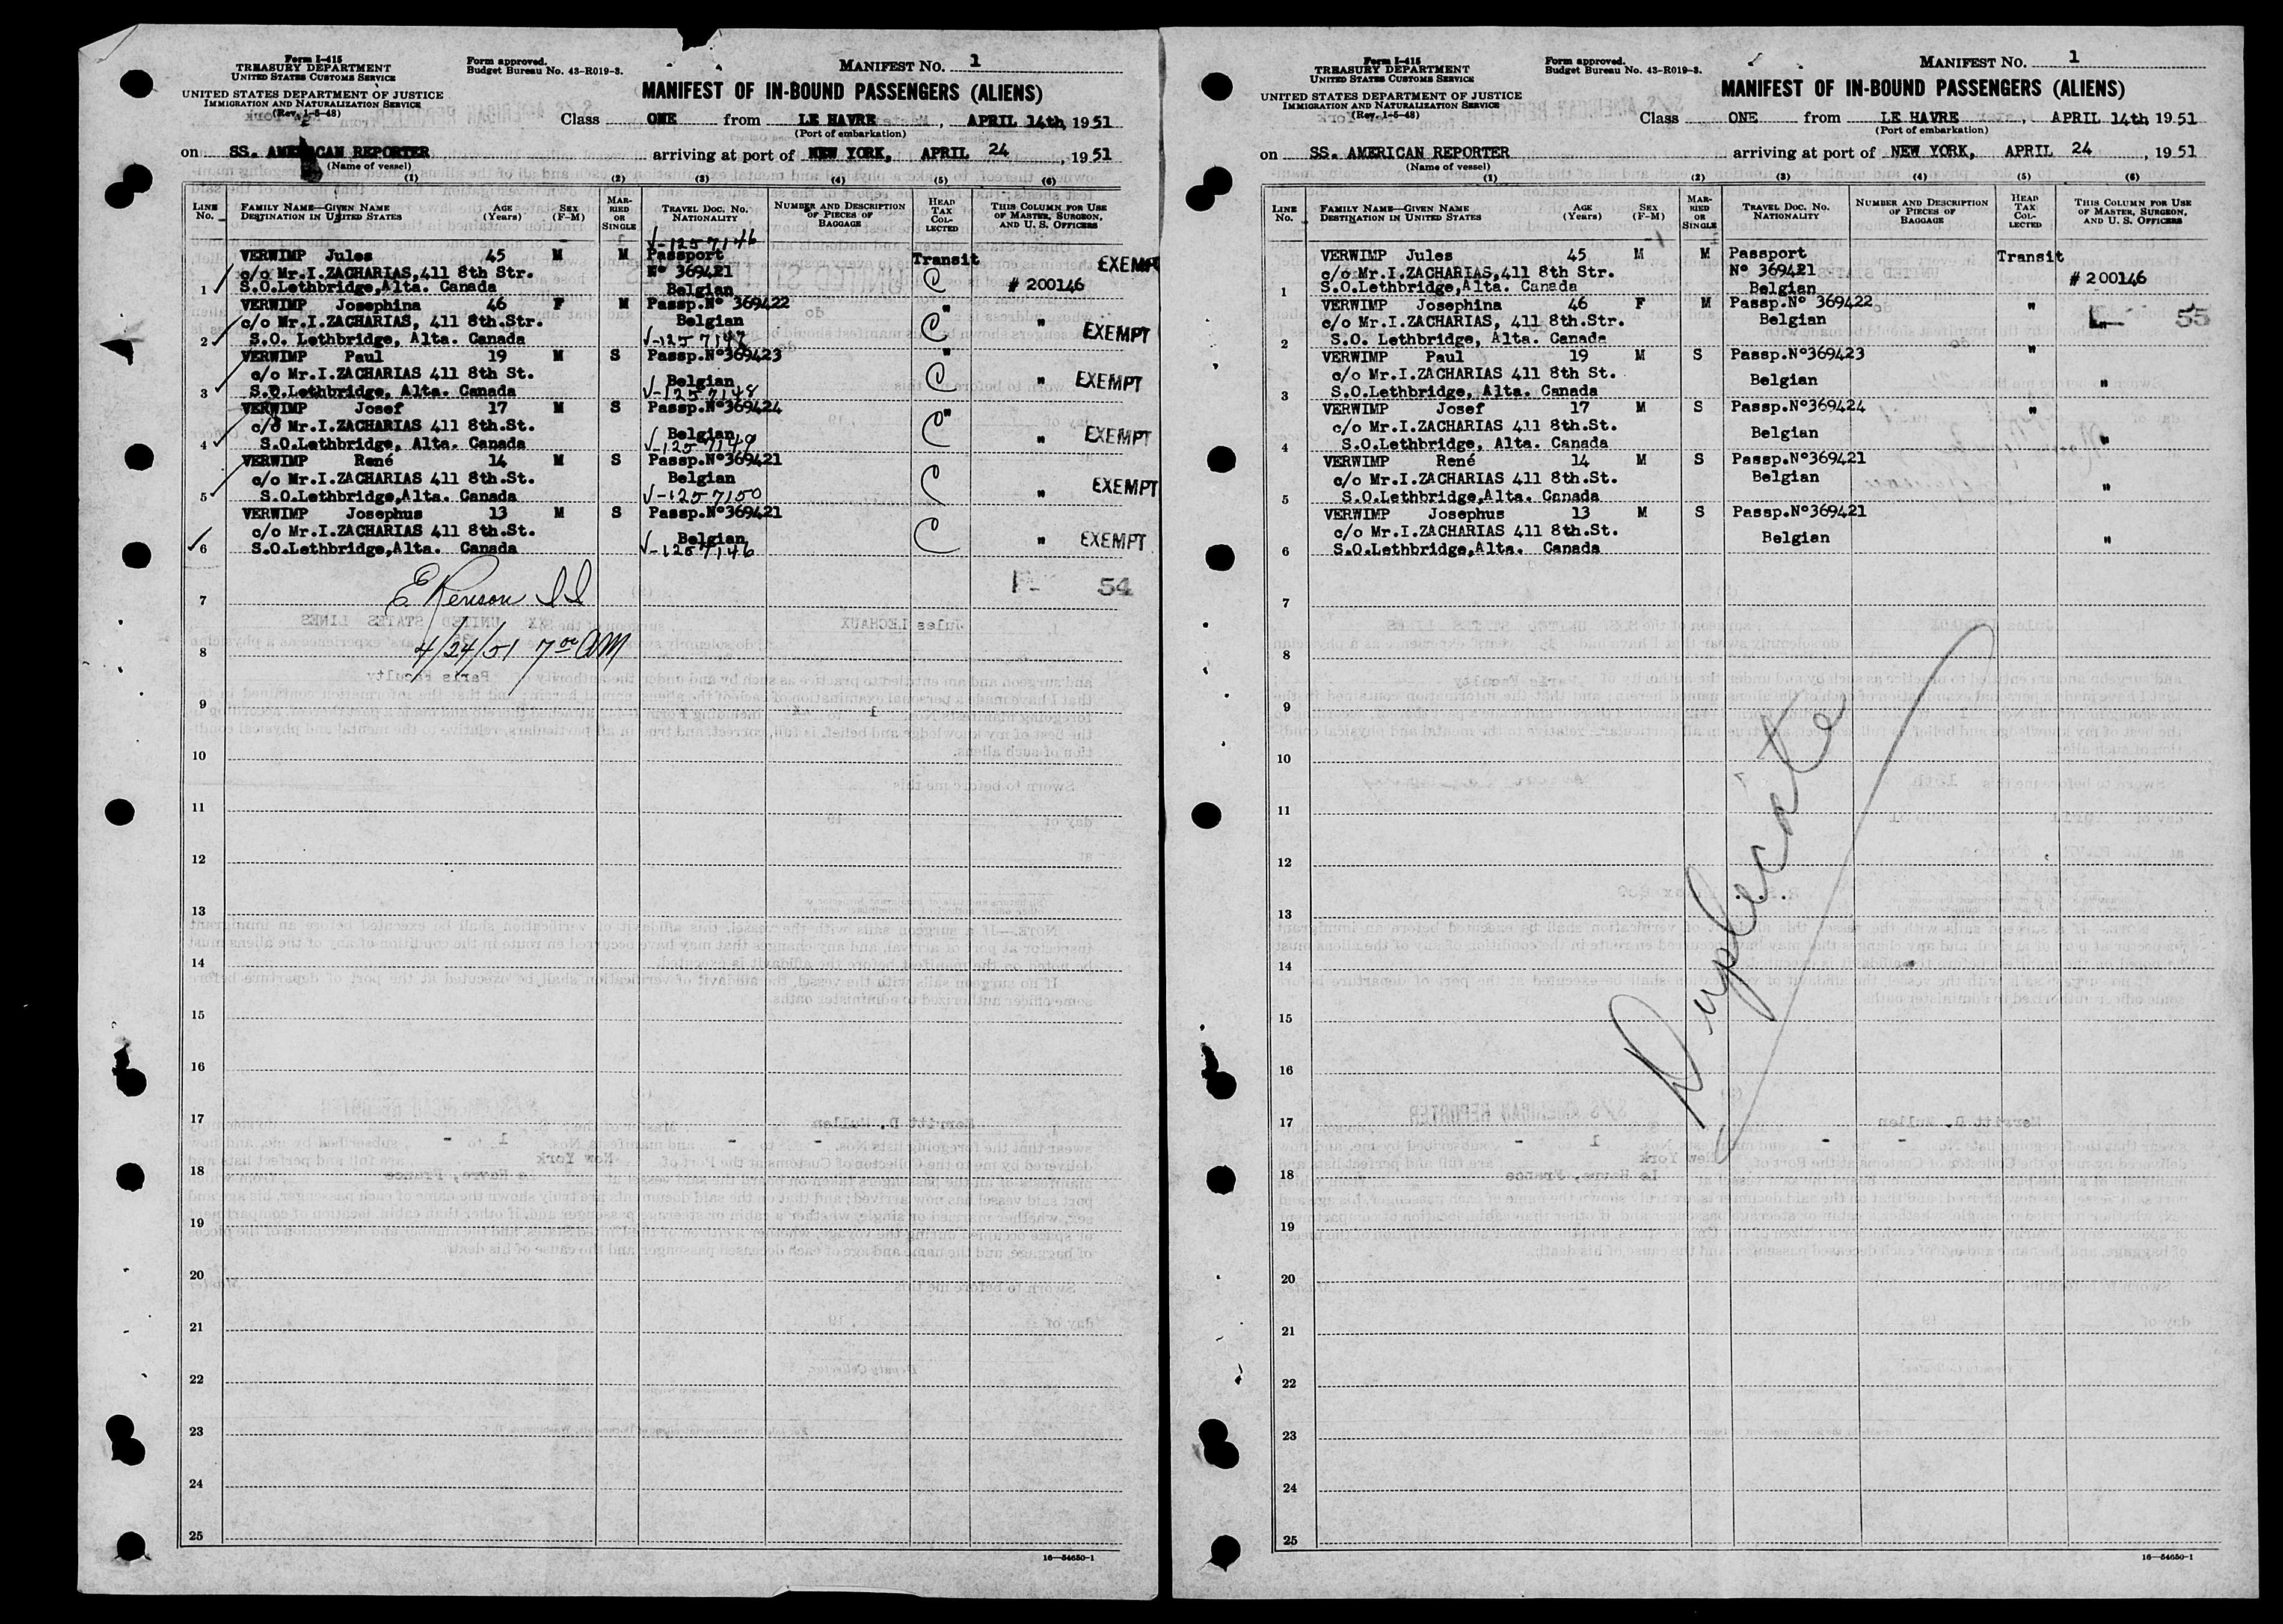 Form I-415
TREASURY DEPARTMENT
UNITED STATES CUSTOMS SERVICE
UNITED STATES DEPARTMENT OF JUSTICE
IMMIGRATION AND NATURALIZATION SERVICE
(Rev. 1-5-48)
Form approved.
Budget Bureau No. 43-R019-3.
MANIFEST NO. 1
MANIFEST OF IN-BOUND PASSENGERS (ALIENS)
Class ONE from LE HAVRE, APRIL 14th, 1951
(Port of embarkation)
on SS. AMERICAN REPORTER arriving at port of NEW YORK, APRIL 24, 1951
(Name of vessel)
(1) (2) (3) (4) (5) (6)
LINE No. FAMILY NAME—GIVEN NAME DESTINATION IN UNITED STATES AGE (Years) SEX (F-M) MARRIED OR SINGLE TRAVEL DOC. NO. NATIONALITY NUMBER AND DESCRIPTION OF PIECES OF BAGGAGE HEAD TAX COLLECTED THIS COLUMN FOR USE OF MASTER, SURGEON, AND U. S. OFFICERS
V-1257146
VERWIMP Jules 45 M M Passport Transit EXEMPT
c/o Mr.I.ZACHARIAS,411 8th Str. N° 369421 C
1 S.O.Lethbridge,Alta. Canada Belgian # 200146
VERWIMP Josephina 46 F M Passp.N° 369422 "
c/o Mr.I.ZACHARIAS, 411 8th.Str. Belgian C " EXEMPT
2 S.O. Lethbridge, Alta. Canada V-1257147
VERWIMP Paul 19 M S Passp.N°369423 "
c/o Mr.I.ZACHARIAS 411 8th St. Belgian C " EXEMPT
3 S.O.Lethbridge, Alta. Canada V-1257148
VERWIMP Josef 17 M S Passp.N°369424 "
c/o Mr.I.ZACHARIAS 411 8th.St. Belgian C " EXEMPT
4 S.O.Lethbridge, Alta. Canada V-1257149
VERWIMP René 14 M S Passp.N°369421
c/o Mr.I.ZACHARIAS 411 8th.St. Belgian C " EXEMPT
5 S.O.Lethbridge,Alta. Canada V-1257150
VERWIMP Josephus 13 M S Passp.N°369421
c/o Mr.I.ZACHARIAS 411 8th.St. Belgian C " EXEMPT
6 S.O.Lethbridge,Alta. Canada V-1257146
54
7 E Renson
8 4/24/51 7 00 AM
9
10
11
12
13
14
15
16
17
18
19
20
21
22
23
24
25
16—54650-1
Form I-415
TREASURY DEPARTMENT
UNITED STATES CUSTOMS SERVICE
UNITED STATES DEPARTMENT OF JUSTICE
IMMIGRATION AND NATURALIZATION SERVICE
(Rev. 1-5-48)
Form approved.
Budget Bureau No. 43-R019-3.
MANIFEST NO. 1
MANIFEST OF IN-BOUND PASSENGERS (ALIENS)
Class ONE from LE HAVRE, APRIL 14th 1951
(Port of embarkation)
on SS. AMERICAN REPORTER arriving at port of NEW YORK, APRIL 24, 1951
(Name of vessel)
(1) (2) (3) (4) (5) (6)
LINE No. FAMILY NAME—GIVEN NAME DESTINATION IN UNITED STATES AGE (Years) SEX (F-M) MARRIED OR SINGLE TRAVEL DOC. NO. NATIONALITY NUMBER AND DESCRIPTION OF PIECES OF BAGGAGE HEAD TAX COLLECTED THIS COLUMN FOR USE OF MASTER, SURGEON, AND U. S. OFFICERS
VERWIMP Jules 45 M M Passport Transit
c/o Mr.I.ZACHARIAS,411 8th Str. N° 369421
1 S.O.Lethbridge,Alta. Canada Belgian # 200146
VERWIMP Josephina 46 F M Passp.N° 369422 "
c/o Mr.I.ZACHARIAS, 411 8th.Str. Belgian 55
2 S.O. Lethbridge, Alta. Canada
VERWIMP Paul 19 M S Passp.N°369423 "
c/o Mr.I.ZACHARIAS 411 8th St. Belgian "
3 S.O.Lethbridge, Alta. Canada
VERWIMP Josef 17 M S Passp.N°369424 "
c/o Mr.I.ZACHARIAS 411 8th.St. Belgian "
4 S.O.Lethbridge, Alta. Canada
VERWIMP René 14 M S Passp.N°369421
c/o Mr.I.ZACHARIAS 411 8th.St. Belgian "
5 S.O.Lethbridge,Alta. Canada
VERWIMP Josephus 13 M S Passp.N°369421
c/o Mr.I.ZACHARIAS 411 8th.St. Belgian "
6 S.O.Lethbridge,Alta. Canada
7
8
9
10
11
12
13
14
15
16
17
18
19
20
21
22
23
24
25
Duplicate
16—54650-1